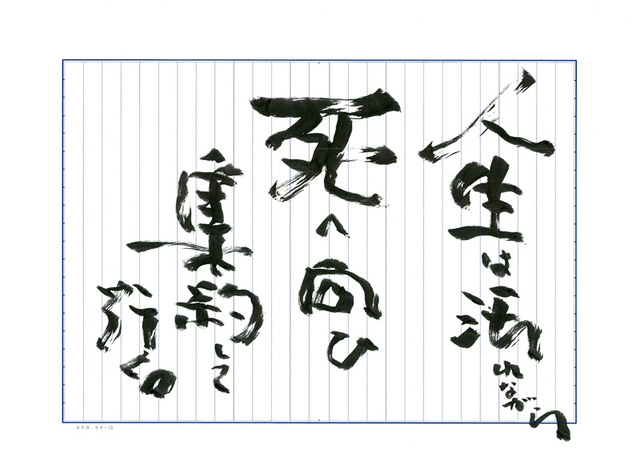 人生は流れながら
死へ向ひ
集約して
行くの
コクヨ ケイ-10